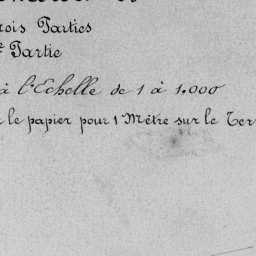 rois Parties
Partie
à l'Echelle de 1 à 1.000
le papier pour 1 Mètre sur le Ter